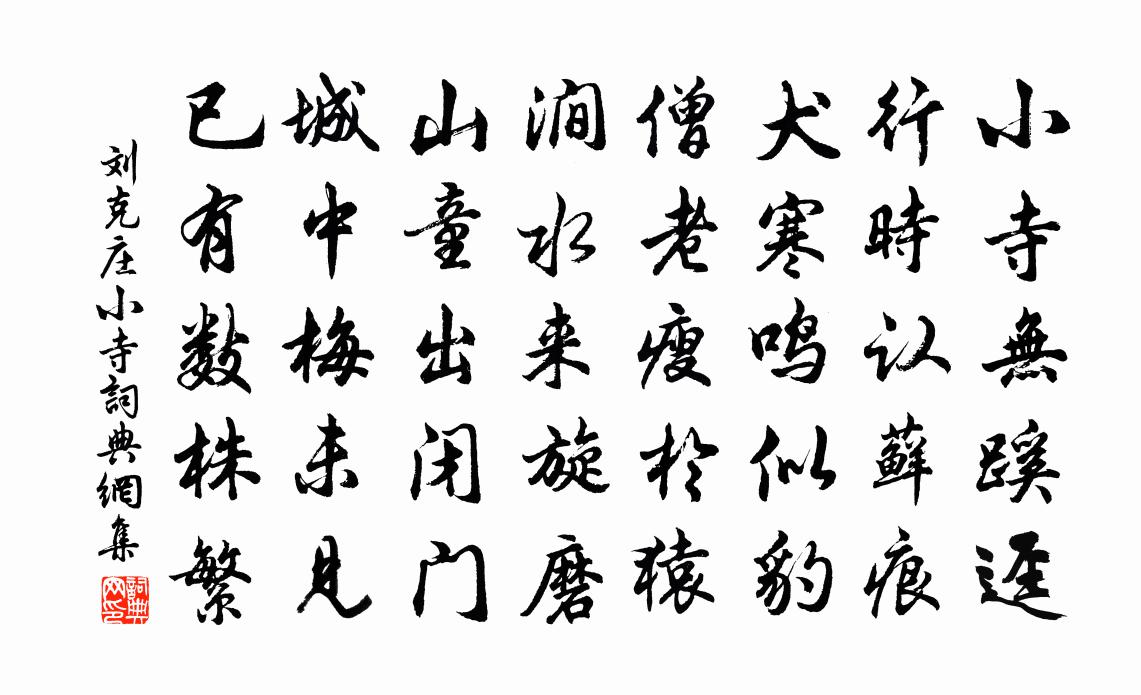 小寺無蹊逕
行時认蘚痕
犬寒鸣似豹
僧老瘦於猿
涧水来旋磨
山童出闭门
城中梅未见
已有数株繁
刘克庄小寺詞典網集
詞典网印